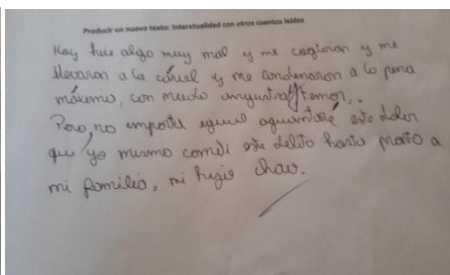 Producir un nuevo texto: Intertextualidad con otros cuentos leídos
Hoy hice algo muy mal y me cogieron y me
llevaron a la cárcel y me condenaron a la pena
máxima, con miedo angustia y temor,.
Pero, no importa igual aguantaré este dolor
que yo mismo cometi este delito hasta pronto a
mi familia, mi hijo chao.